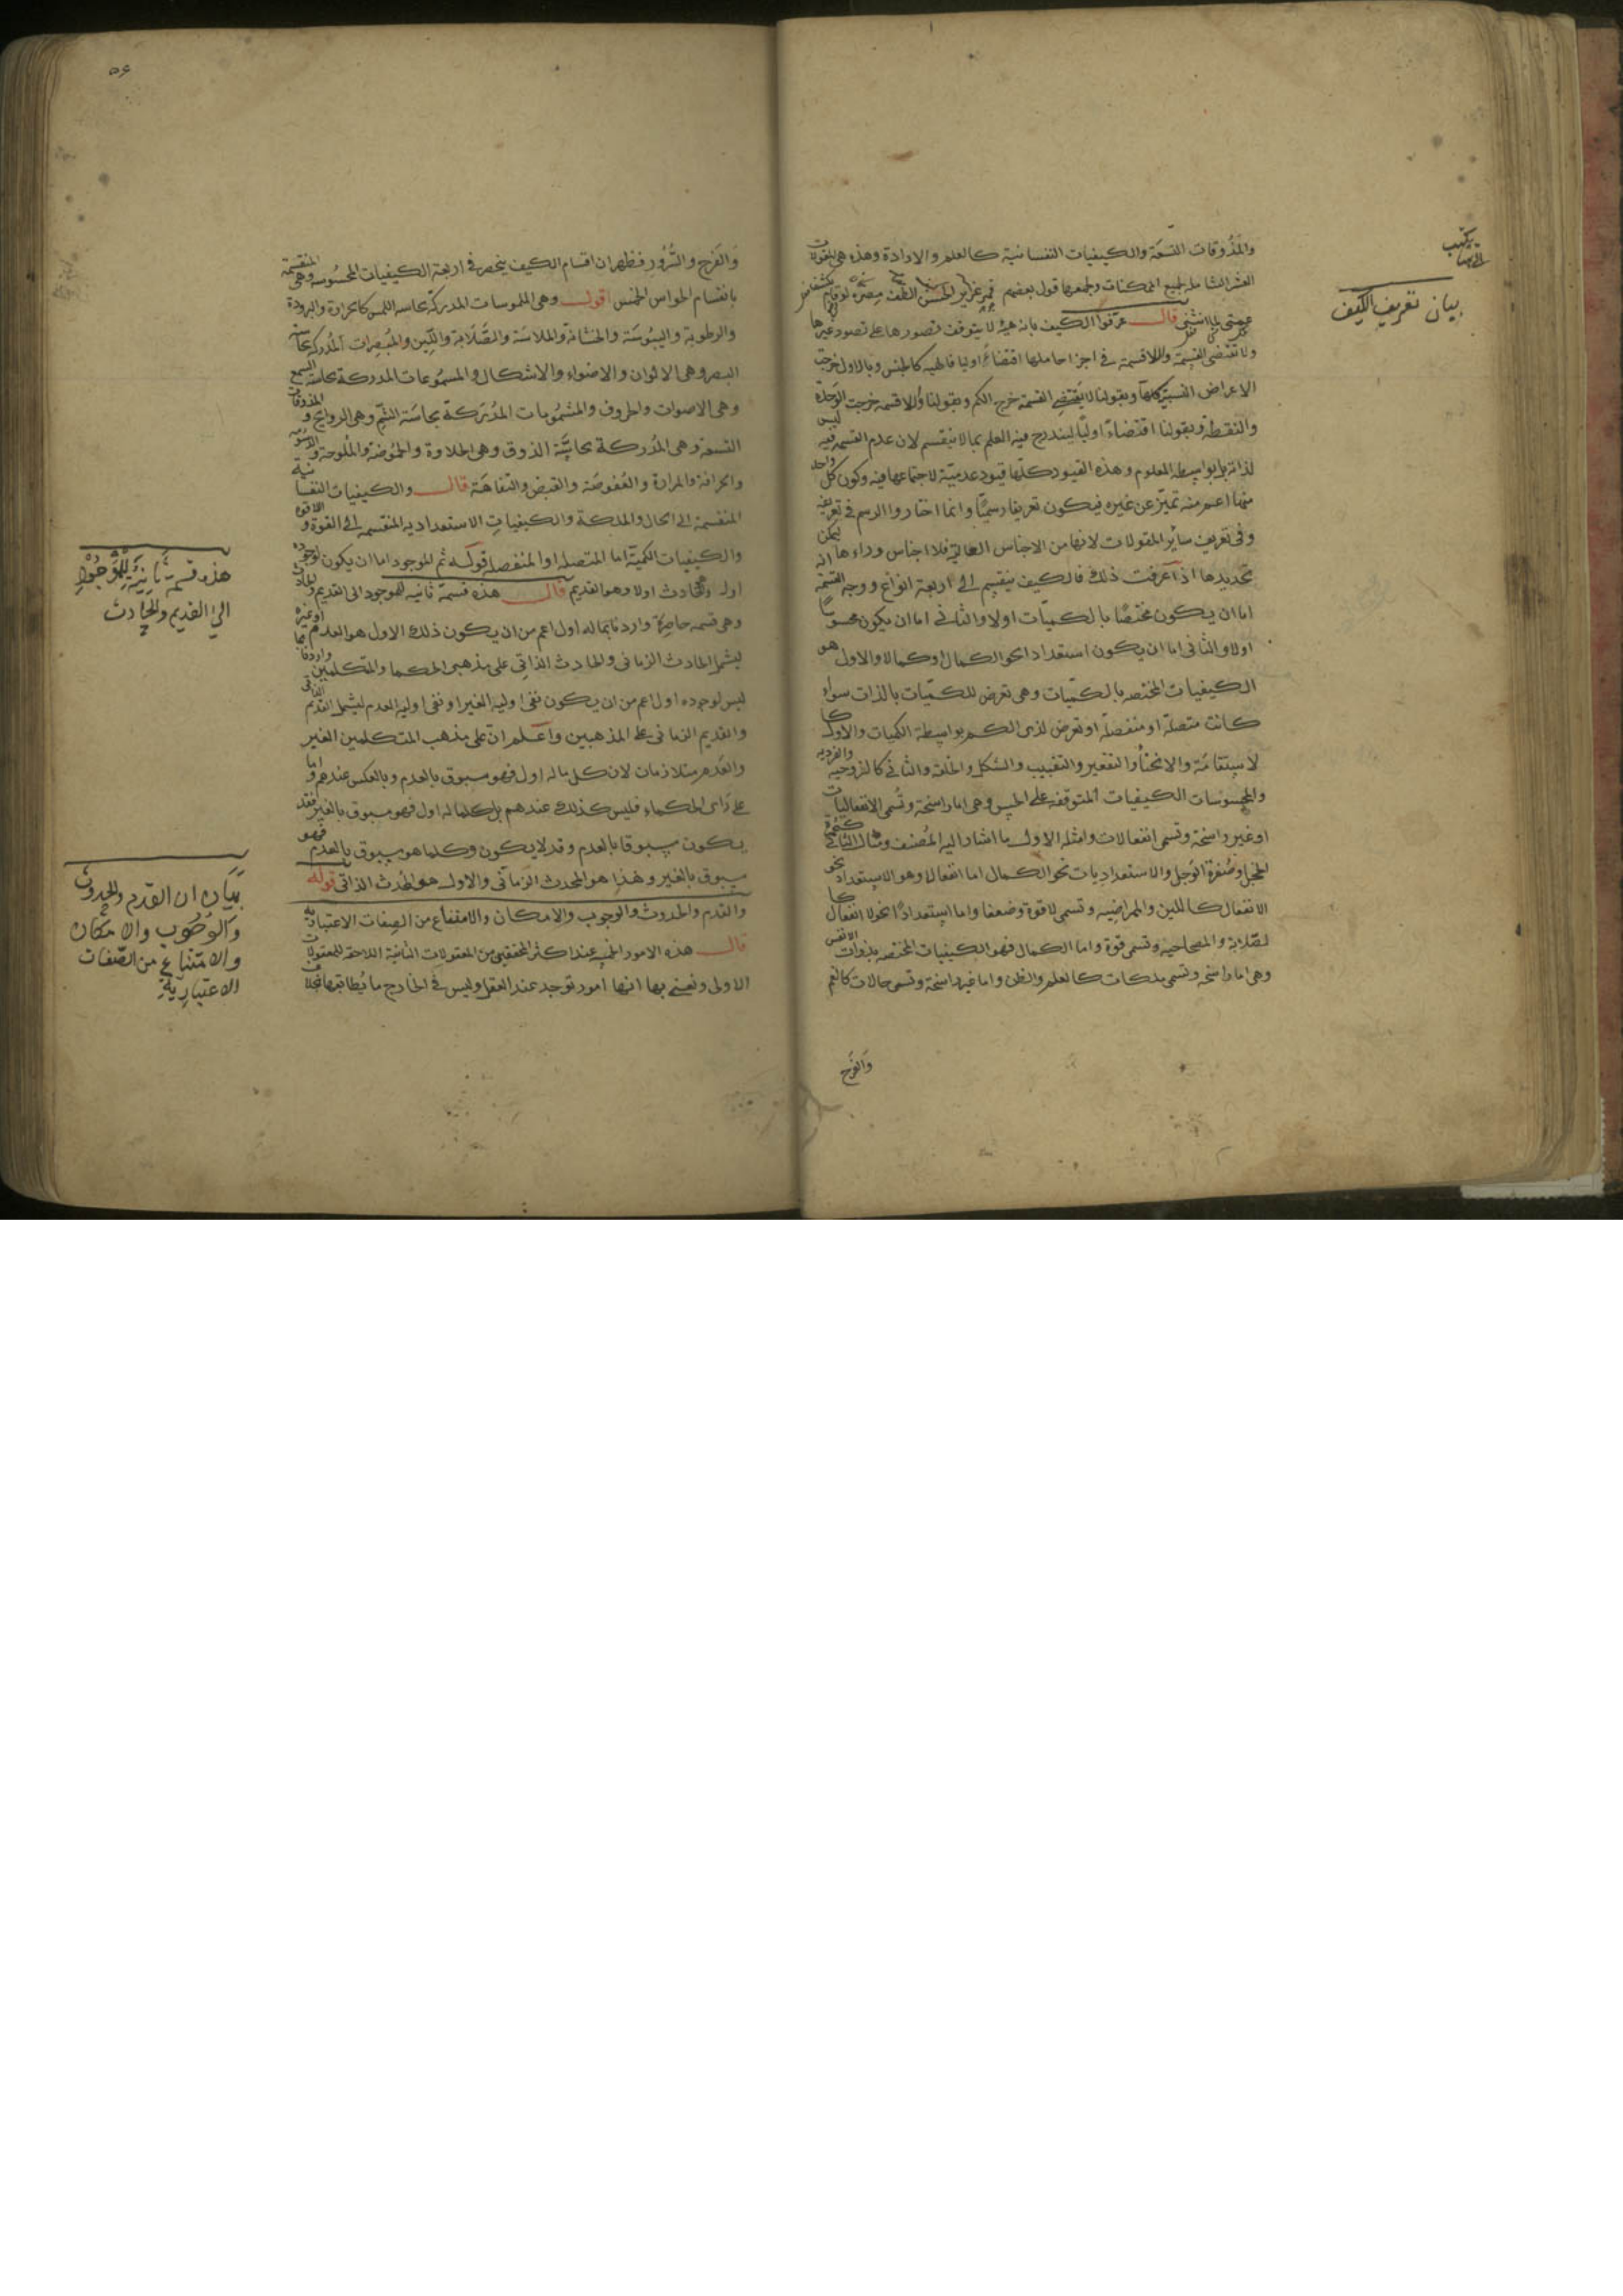 والمذوقات التسعة والكيفيات النفسانية كالعلم والارادة وهذه هي المقولات
العشر الشاملة لجميع الممكنات ويجمعها قول بعضهم قمر غزير الحسن الطف مصره لو قام يكشف
غمتي لما انثنى قال عرفوا الكيف بانه هيئة لا يتوقف تصورها على تصور غيرها
ولا تقتضي القسمة واللاقسمة في اجزا حاملها اقتضاءً اوليا فالهيه كالجنس وبالاول خرجت
الاعراض النسبية كلها وبقولنا لا يقتضي القسمة خرج الكم وبقولنا ولاقسمه خرجت الوحدة
والنقطة وبقولنا اقتضاءً اوليا ليندرج فيه العلم بما لا ينقسم لان عدم القسمه فيه ليس
لذاته بل بواسطه المعلوم وهذه القيود كلها قيود عدمية لاجتماعها فيه وكون كل واحد
منها اعم منه تميز عن غيره فيكون تعريفا رسميًا وانما اختاروا الرسم في تعريفه
وفي تعريف سائر المقولات لانها من الاجناس العالية فلا اجناس وراءها ليمكن
تحديدها اذا عرفت ذلك فالكيف ينقسم الى اربعة انواع ووجه القسمة انه
اما ان يكون مختصًا بالكميات اولا والثاني اما ان يكون محسوسًا
اولا والثاني اما ان يكون استعدادا نحو الكمال او كمالا والاول هو
الكيفيات المختصه بالكميات وهي تعرض للكميات بالذات سواء
كانت متصلة او منفصلة او تعرض لذى الكم بواسطة الكميات والاول كا
لاستقامة والانحناء والتقعير والتقبيب والشكل والخلقة والثاني كالزوجيه والفرديه
والمحسوسات الكيفيات المتوقفه على الحس وهي اما راسخة وتسمى الانفعاليات
او غير راسخة وتسمى انفعالات وامثلة الاول ما اشار اليه المصنف ومثال الثاني كحمرة
الخجل وصفرة الوجل والاستعداديات نحو الكمال اما انفعالا وهو الاستعداد نحو
الانفعال كاللين والممراضيه وتسمى لاقوة وضعفا واما استعدادًا نحو لا انفعال كا
لصلابة والمصاحيه وتسمى قوة واما الكمال فهو الكيفيات المختصه بذوات الانفس
وهي اما راسخه وتسمى ملكات كالعلم والظن واما غير راسخة وتسمى حالات كالغم
والفرح
بيان تعريف الكيف
٥٦
والفرح والسرور فظهر ان اقسام الكيف ينحصر في اربعة الكيفيات المحسوسه وهي المنقسمة
بانقسام الحواس الخمس اقول وهي الملموسات المدركة بحاسه اللمس كالحرارة والبرودة
والرطوبة واليبوسة والخشانة والملاسة والصلابة واللين والمبصرات المدركة بحاسة
البصر وهي الالوان والاضواء والاشكال والمسموعات المدركة بحاسة السمع
وهي الاصوات والحروف والمشمومات المدركة بحاسة الشم وهي الروايح و المذوقات
التسعة وهي المدركة بحاسة الذوق وهي الحلاوة والحموضة والملوحة والدسومه
والحرافة والمرارة والعفوصة والقبض والتفاهة قال والكيفيات النفسانية
المنقسمة الى الحال والملكة والكيفيات الاستعداديه المنقسمه الى القوة و اللاقوه
والكيفيات الكمية اما المتصله او المنفصله قوله ثم الموجود اما ان يكون لوجوده
اول وهو الحادث اولا وهو القديم قال هذه قسمة ثانيه للموجود الى القديم والحادث
وهي قسمه حاصرة واردنا بماله اول اعم من ان يكون ذلك الاول هو العدم او غيره
ليشمل الحادث الزماني والحادث الذاتي على مذهبي الحكما والمتكلمين واردنا بما
ليس لوجوده اول اعم من ان يكون نفى اولية الغير او نفى اولية العدم ليشمل القديم الذاتي
والقديم الزماني على المذهبين واعلم ان على مذهب المتكلمين الغير
والعدم متلازمان لان كل ماله اول فهو مسبوق بالعدم وبالعكس عندهم واما
على راى الحكماء فليس كذلك عندهم بل كلما له اول فهو مسبوق بالغير فقد
يكون مسبوقا بالعدم وقد لا يكون وكلما هو مسبوق بالعدم فهو
مسبوق بالغير وهذا هو المحدث الزماني والاول هو المحدث الذاتي قوله
والقدم والحدوث والوجوب والامكان والامتناع من الصفات الاعتباريه
قال هذه الامور الخمسه عند اكثر المحققين من المعقولات الثانية اللاحقه للمعقولات
الاولى ونعني بها انها امور توجد عند العقل وليس في الخارج ما يطابقها
هذه قسمة ثانية للموجود
الى القديم والحادث
بيان ان القدم والحدوث
والوجوب والامكان
والامتناع من الصفات
الاعتبارية